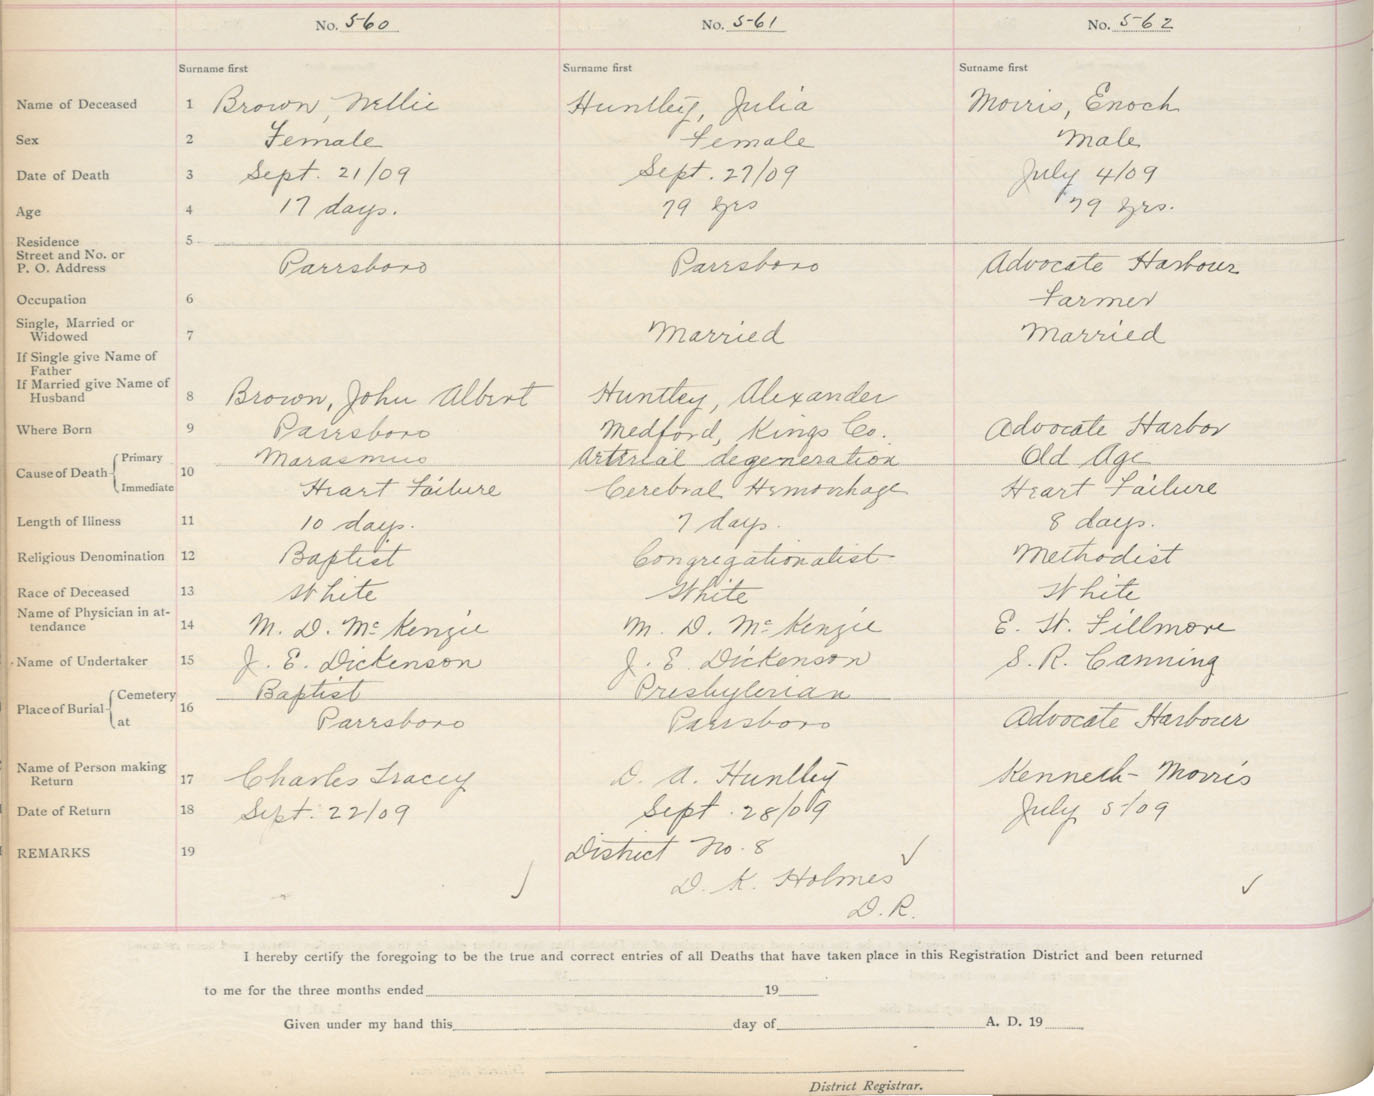 No. 560 No. 561 No. 562
Surname first Surname first Surname first
Name of Deceased 1 Brown, Nellie Huntley, Julia Morris, Enoch
Sex 2 Female Female Male
Date of Death 3 Sept. 21/09 Sept. 27/09 July 4/09
Age 4 17 days. 79 yrs 79 yrs.
Residence 5
Street and No. or
P. O. Address Parrsboro Parrsboro Advocate Harbour
Occupation 6 Farmer
Single, Married or
Widowed 7 Married Married
If Single give Name of
Father
If Married give Name of
Husband 8 Brown, John Albert Huntley, Alexander
Where Born 9 Parrsboro Medford, Kings Co. Advocate Harbor
Cause of Death 10 Primary Marasmus Arterial degeneration Old Age
Immediate Heart Failure Cerebral Hemorrhage Heart Failure
Length of Illness 11 10 days. 7 days. 8 days.
Religious Denomination 12 Baptist Congregationalist Methodist
Race of Deceased 13 White White White
Name of Physician in at-
tendance 14 M. D. McKenzie M. D. McKenzie E. W. Fillmore
Name of Undertaker 15 J. E. Dickenson J. E. Dickenson S. R. Canning
Place of Burial 16 Cemetery Baptist Presbyterian
at Parrsboro Parrsboro Advocate Harbour
Name of Person making
Return 17 Charles Tracey D. A. Huntley Kenneth Morris
Date of Return 18 Sept. 22/09 Sept. 28/09 July 5/09
REMARKS 19 District No. 8
D. K. Holmes
D. R.
I hereby certify the foregoing to be the true and correct entries of all Deaths that have taken place in this Registration District and been returned
to me for the three months ended 19
Given under my hand this day of A. D. 19
District Registrar.